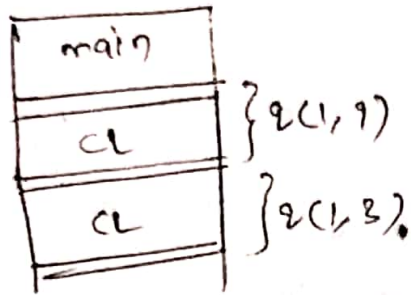 main
CL
q(1,9)
CL
q(1,3).